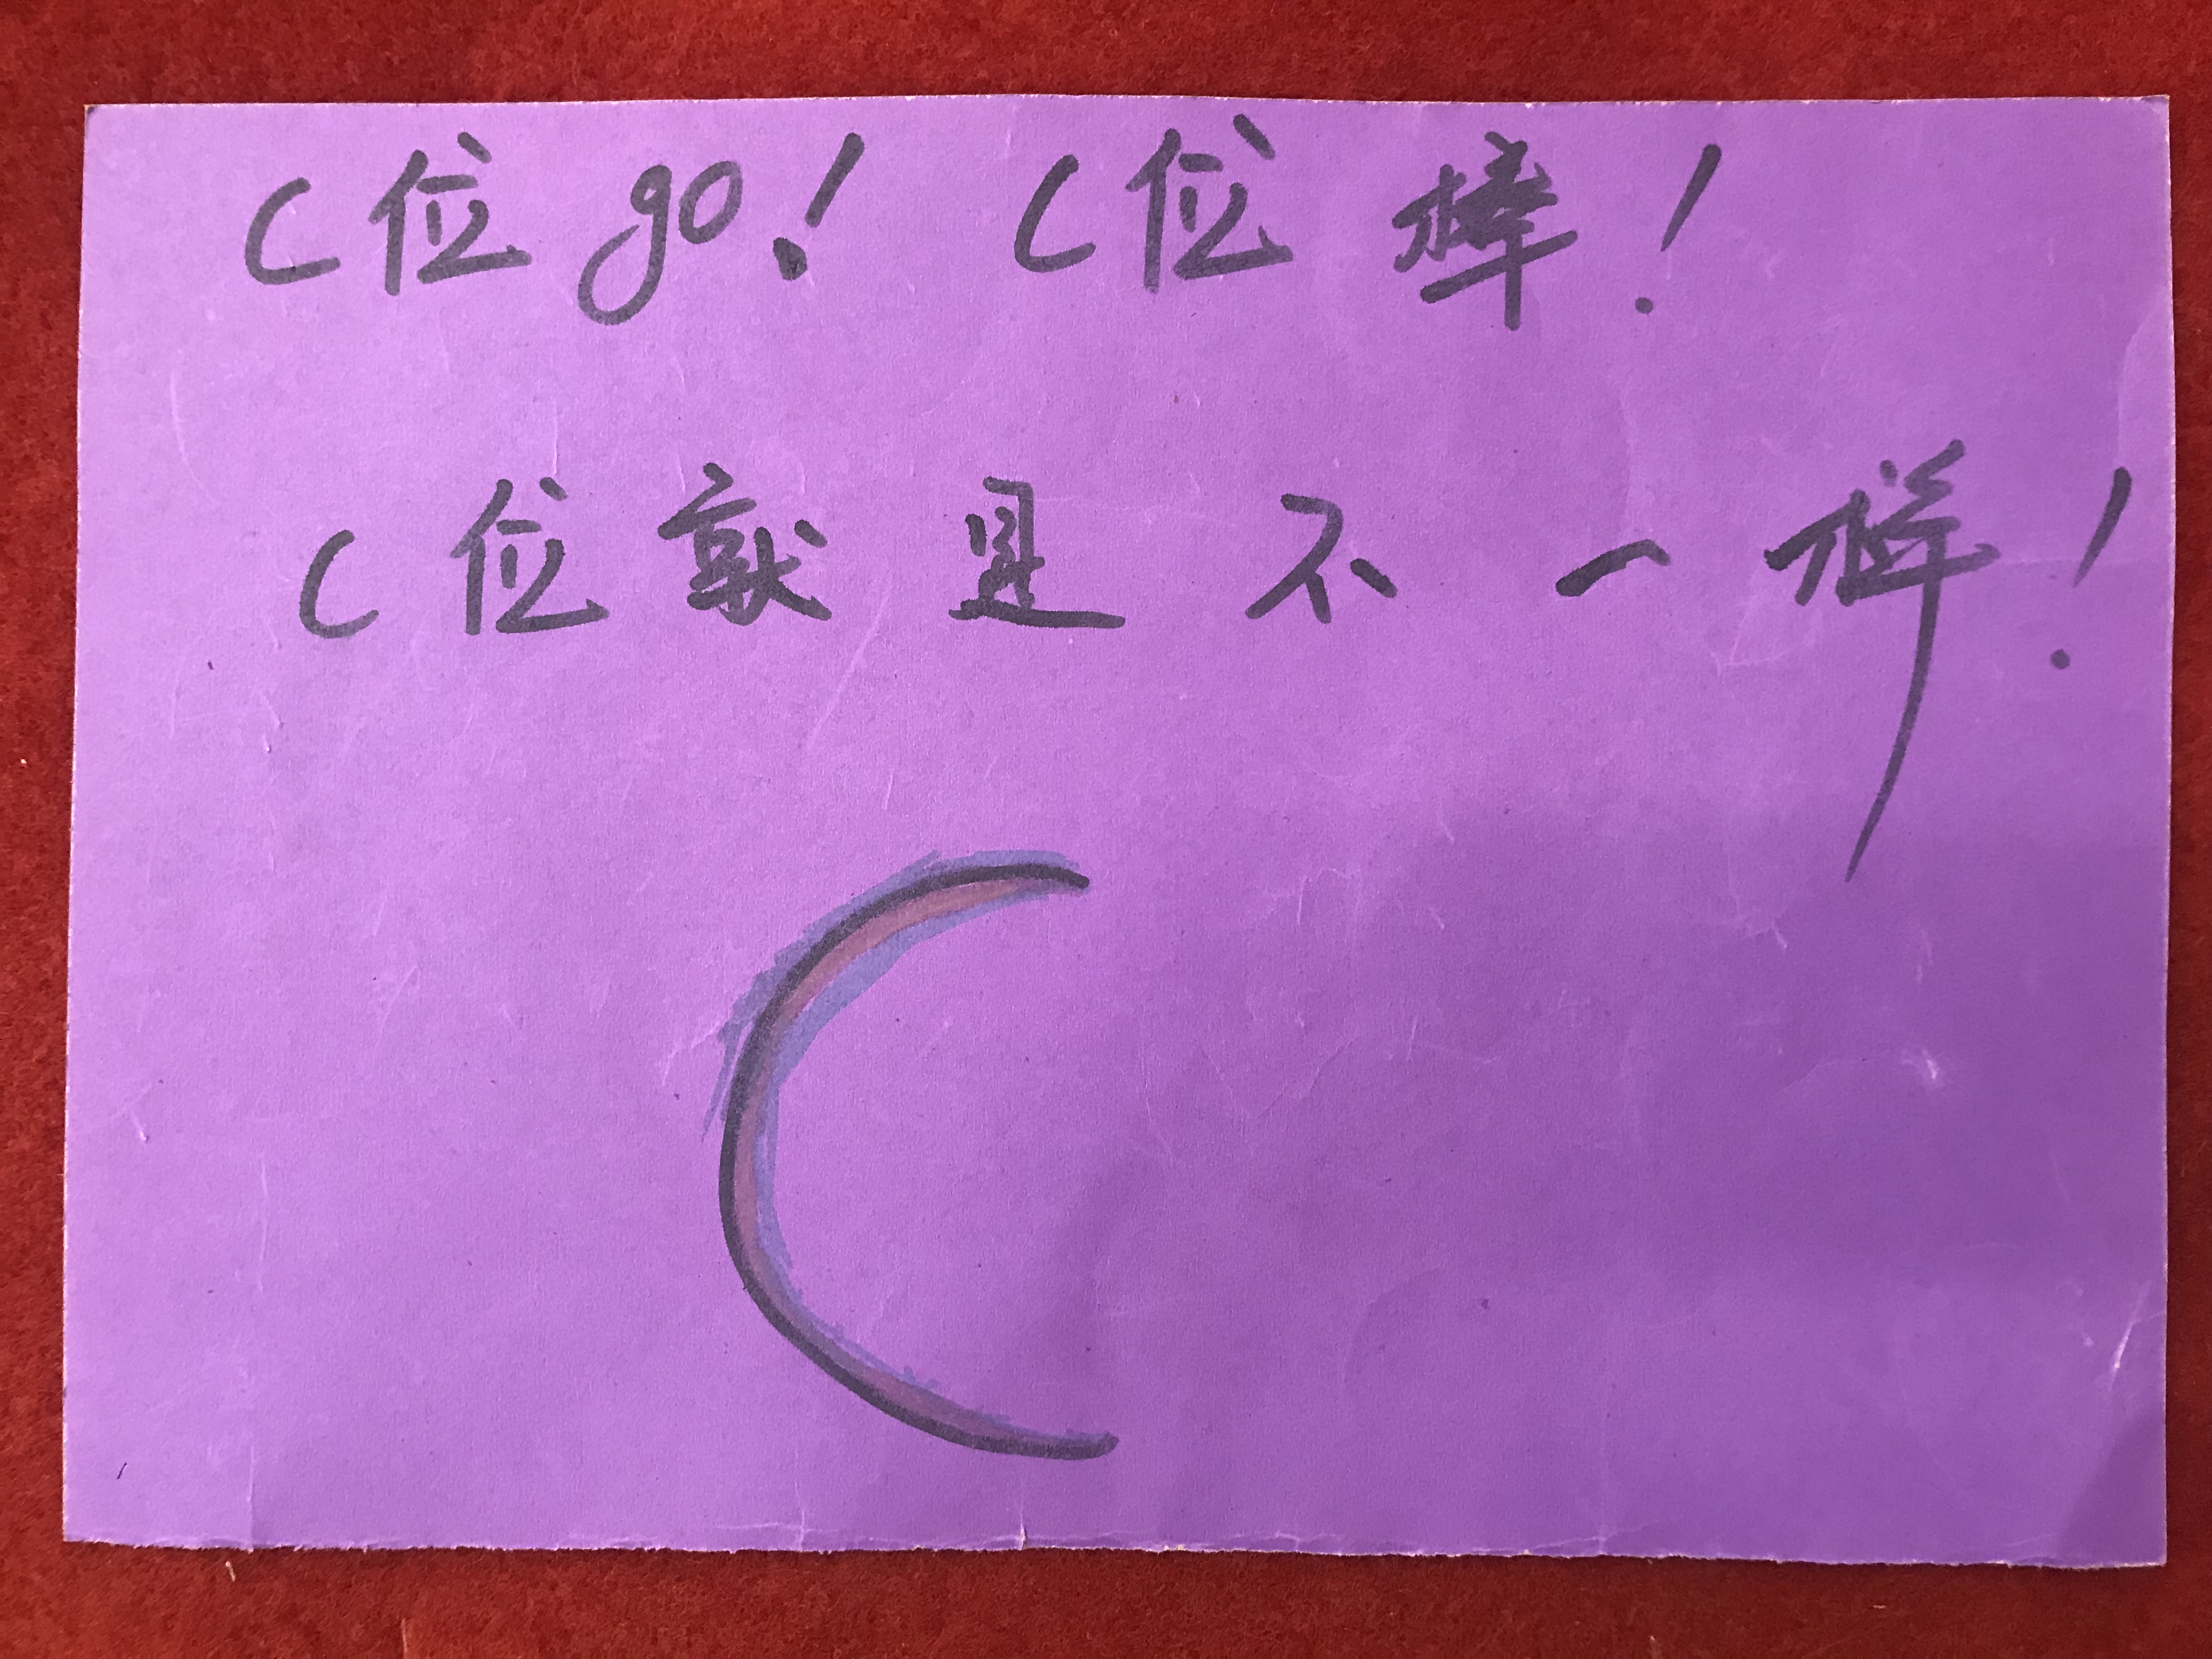 C位go! C位棒!
C位就是不一样!
C